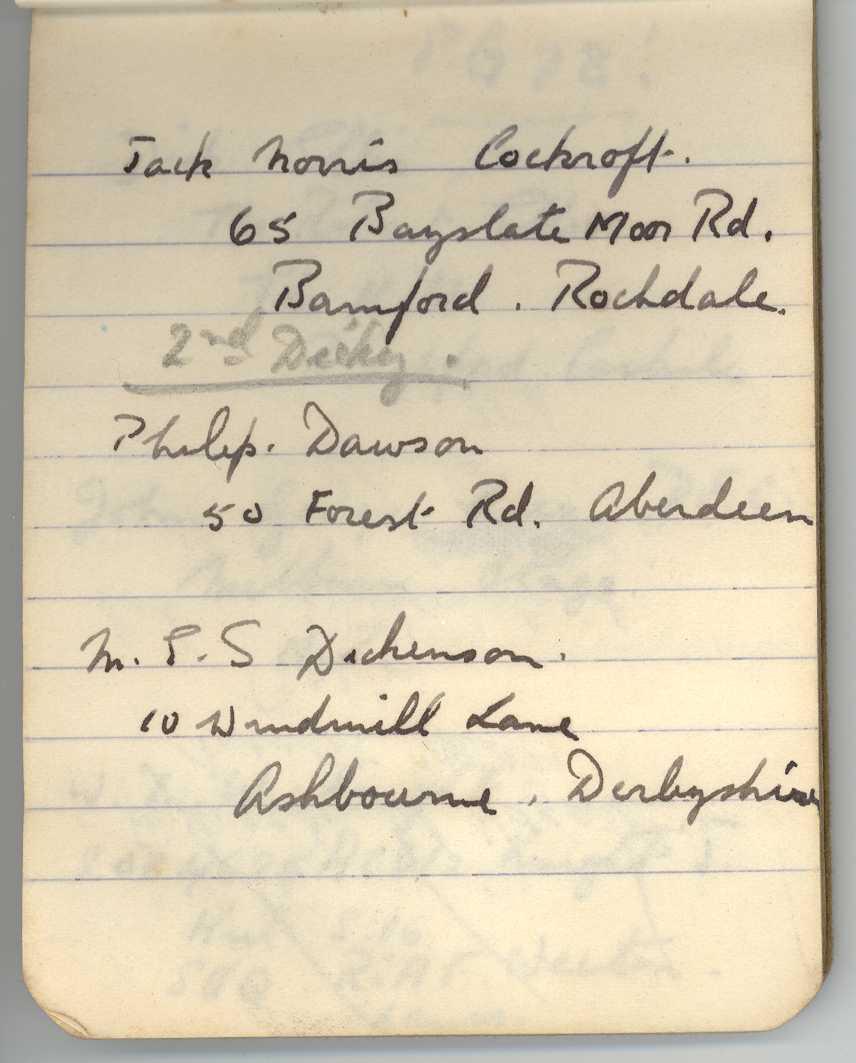 Jack Norris Cockroft.
65 Bayslate Moor Rd.
Bamford. Rochdale.
2nd Dicky.
Philip. Dawson
50 Forest Rd. Aberdeen
M. P. S Dickenson.
10 Windmill Lane
Ashbourne, Derbyshire